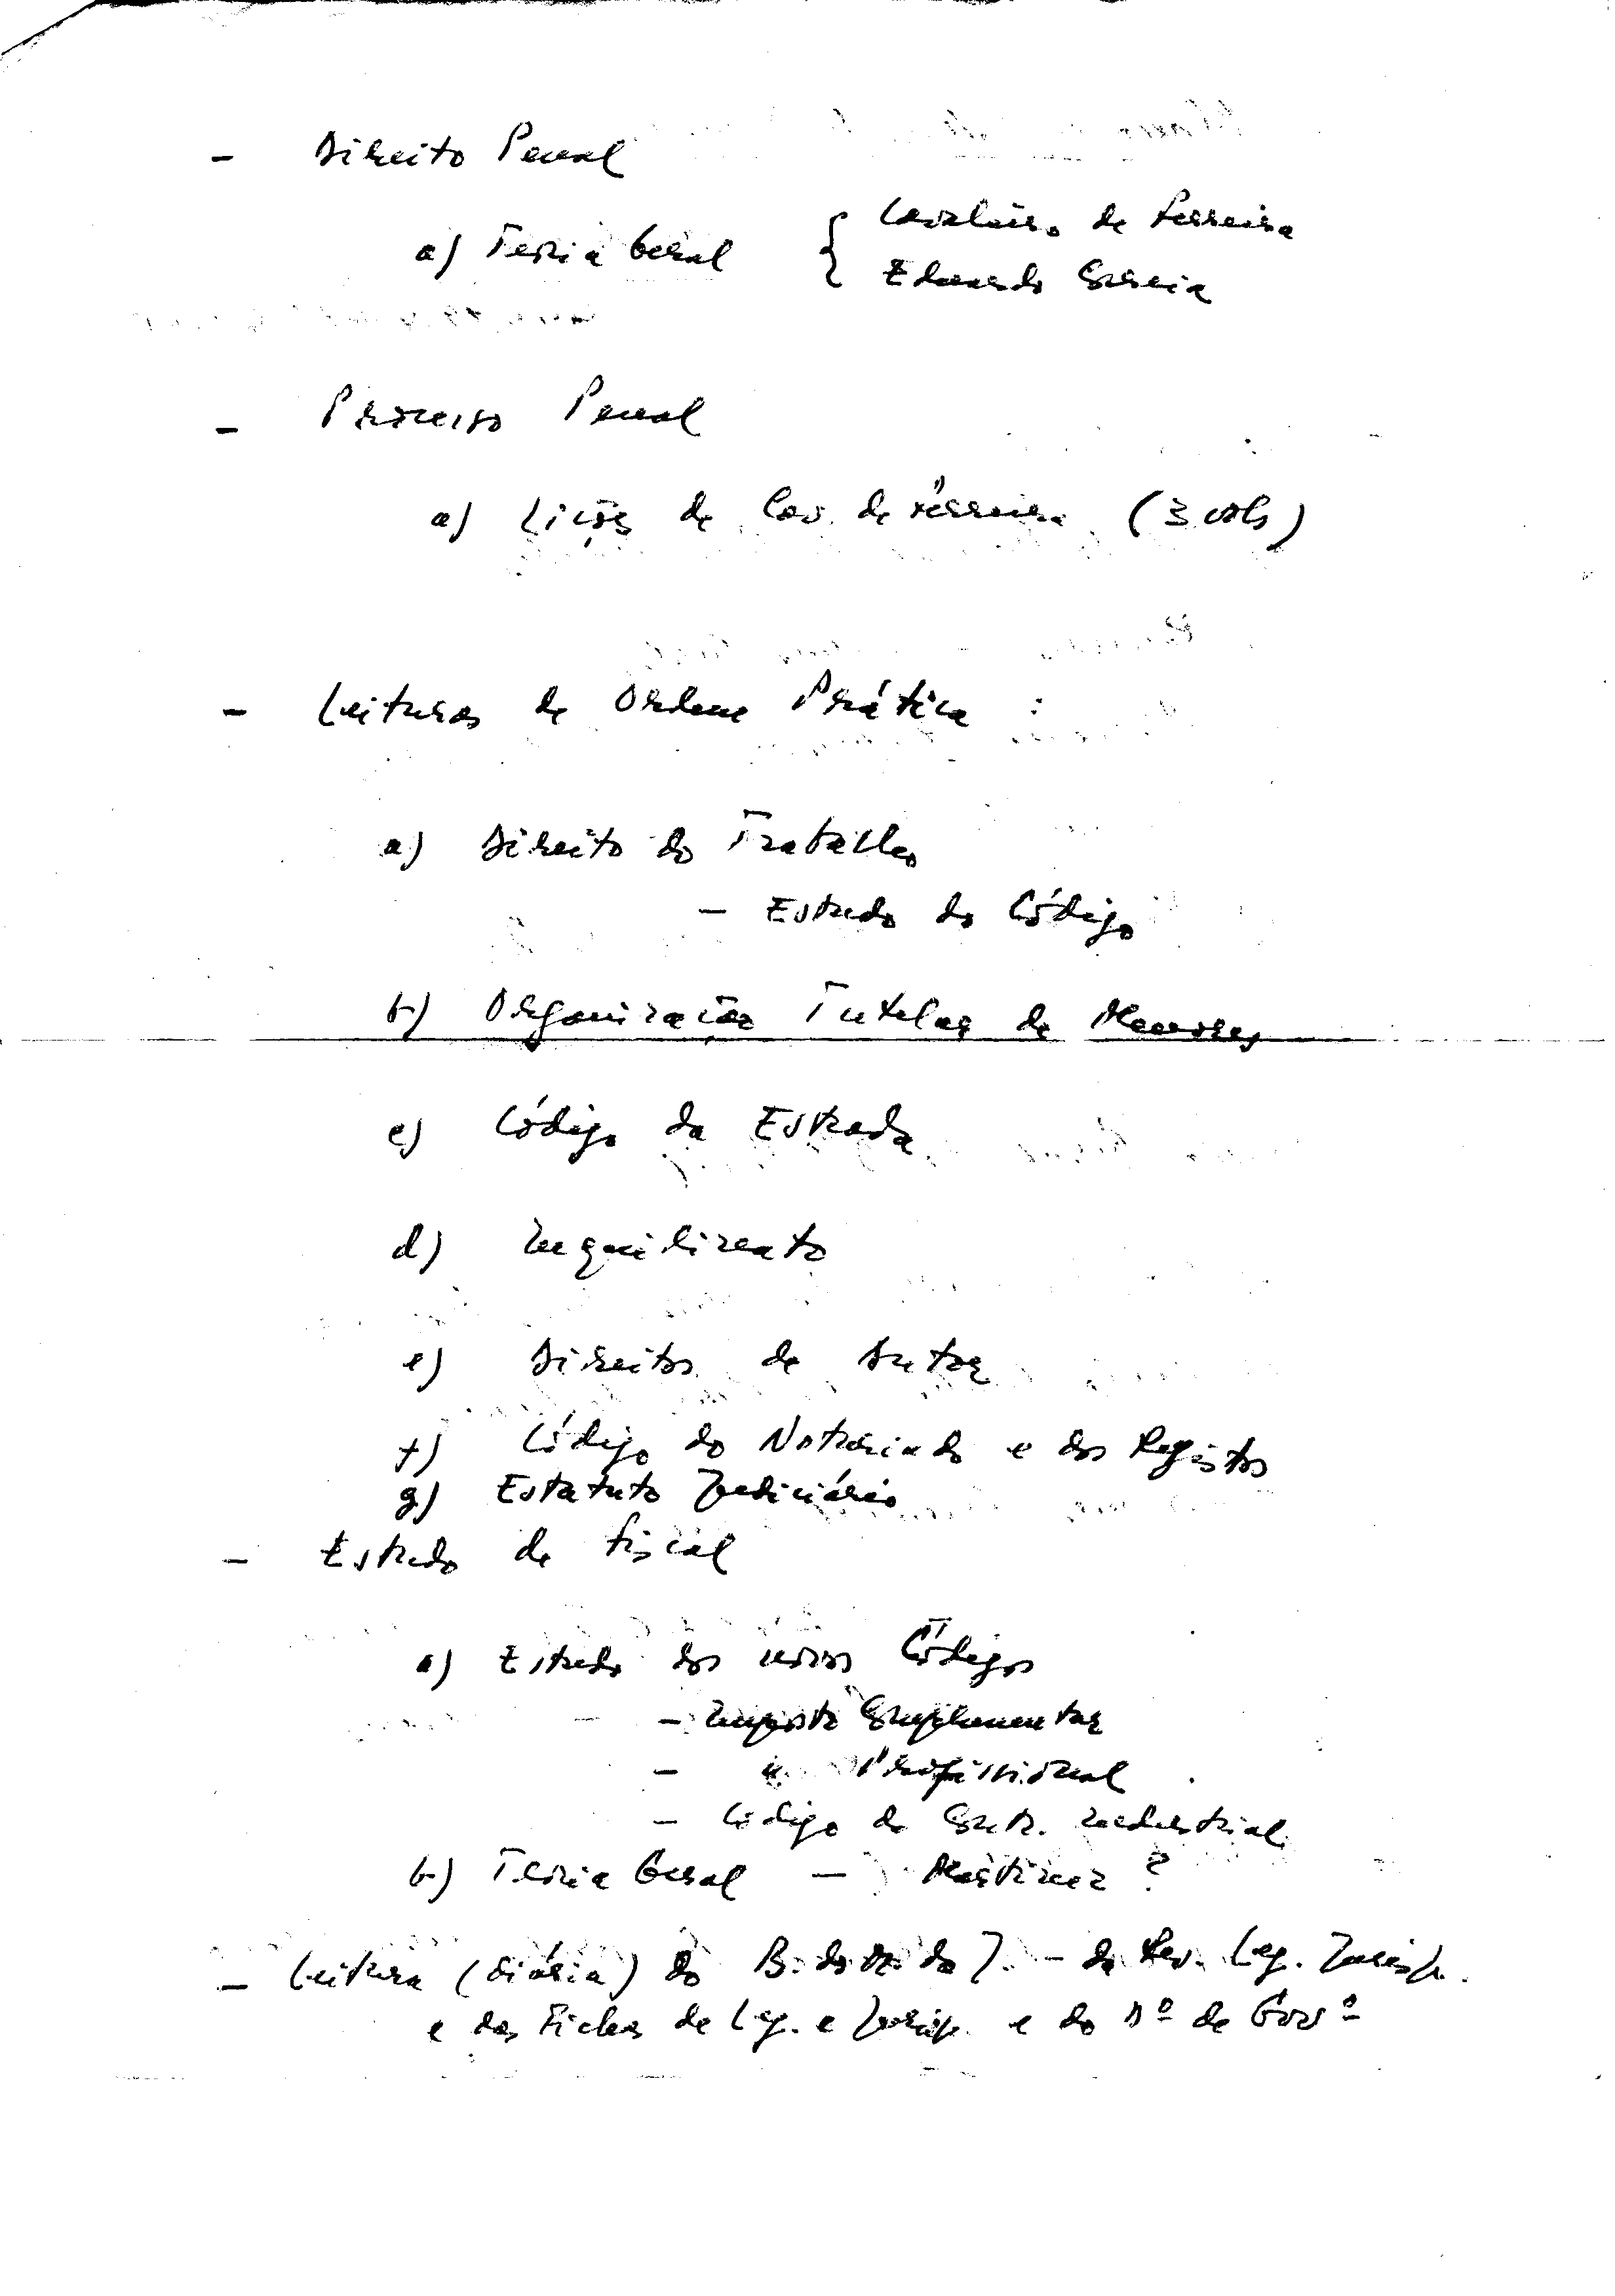 - Direito Penal
a) Teoria Geral { Cavaleiro de Ferreira
Eduardo Correia
- Processo Penal
a) Lições de Cav. de Ferreira (3 vols)
- Leituras de Ordem Prática :
a) Direito do Trabalho
- Estudo do Código
b) Organização Tutelar de Menores
c) Código da Estrada
d) Inquilinato
e) Direitos de Autor
f) Código do Notariado e dos Registos
g) Estatuto Judiciário
- Estudo de Fiscal
a) Estudo dos novos Códigos
- Imposto Complementar
- " Profissional
- Código da Contr. Industrial
b) Teoria Geral - Martinez ?
- Leitura (diária) do B. da J. - da Rev. Leg. Jurisp.
e das Fichas de Leg. e Jurisp. e do Dº de Govº